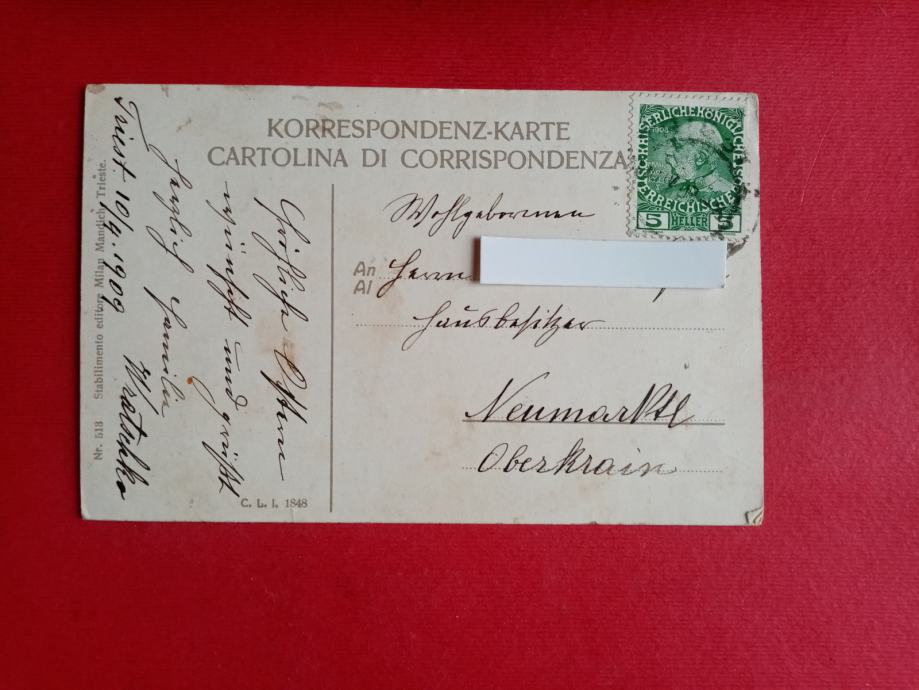 KORRESPONDENZ-KARTE
CARTOLINA DI CORRISPONDENZA
KAISERLICHE KÖNIGLICHE
1908
ÖSTERREICHISCHE
5 HELLER 5
Wohlgebornen
An Herrn
Al
Hausbesitzer
Neumarktl
Oberkrain
Fröhliche Ostern
wünscht und grüßt
herzlich Familie
Triest 10/4. 1909 Wratschko
Nr. 513 Stabilimento editore Milan Mandich, Trieste.
C. L. I. 1848